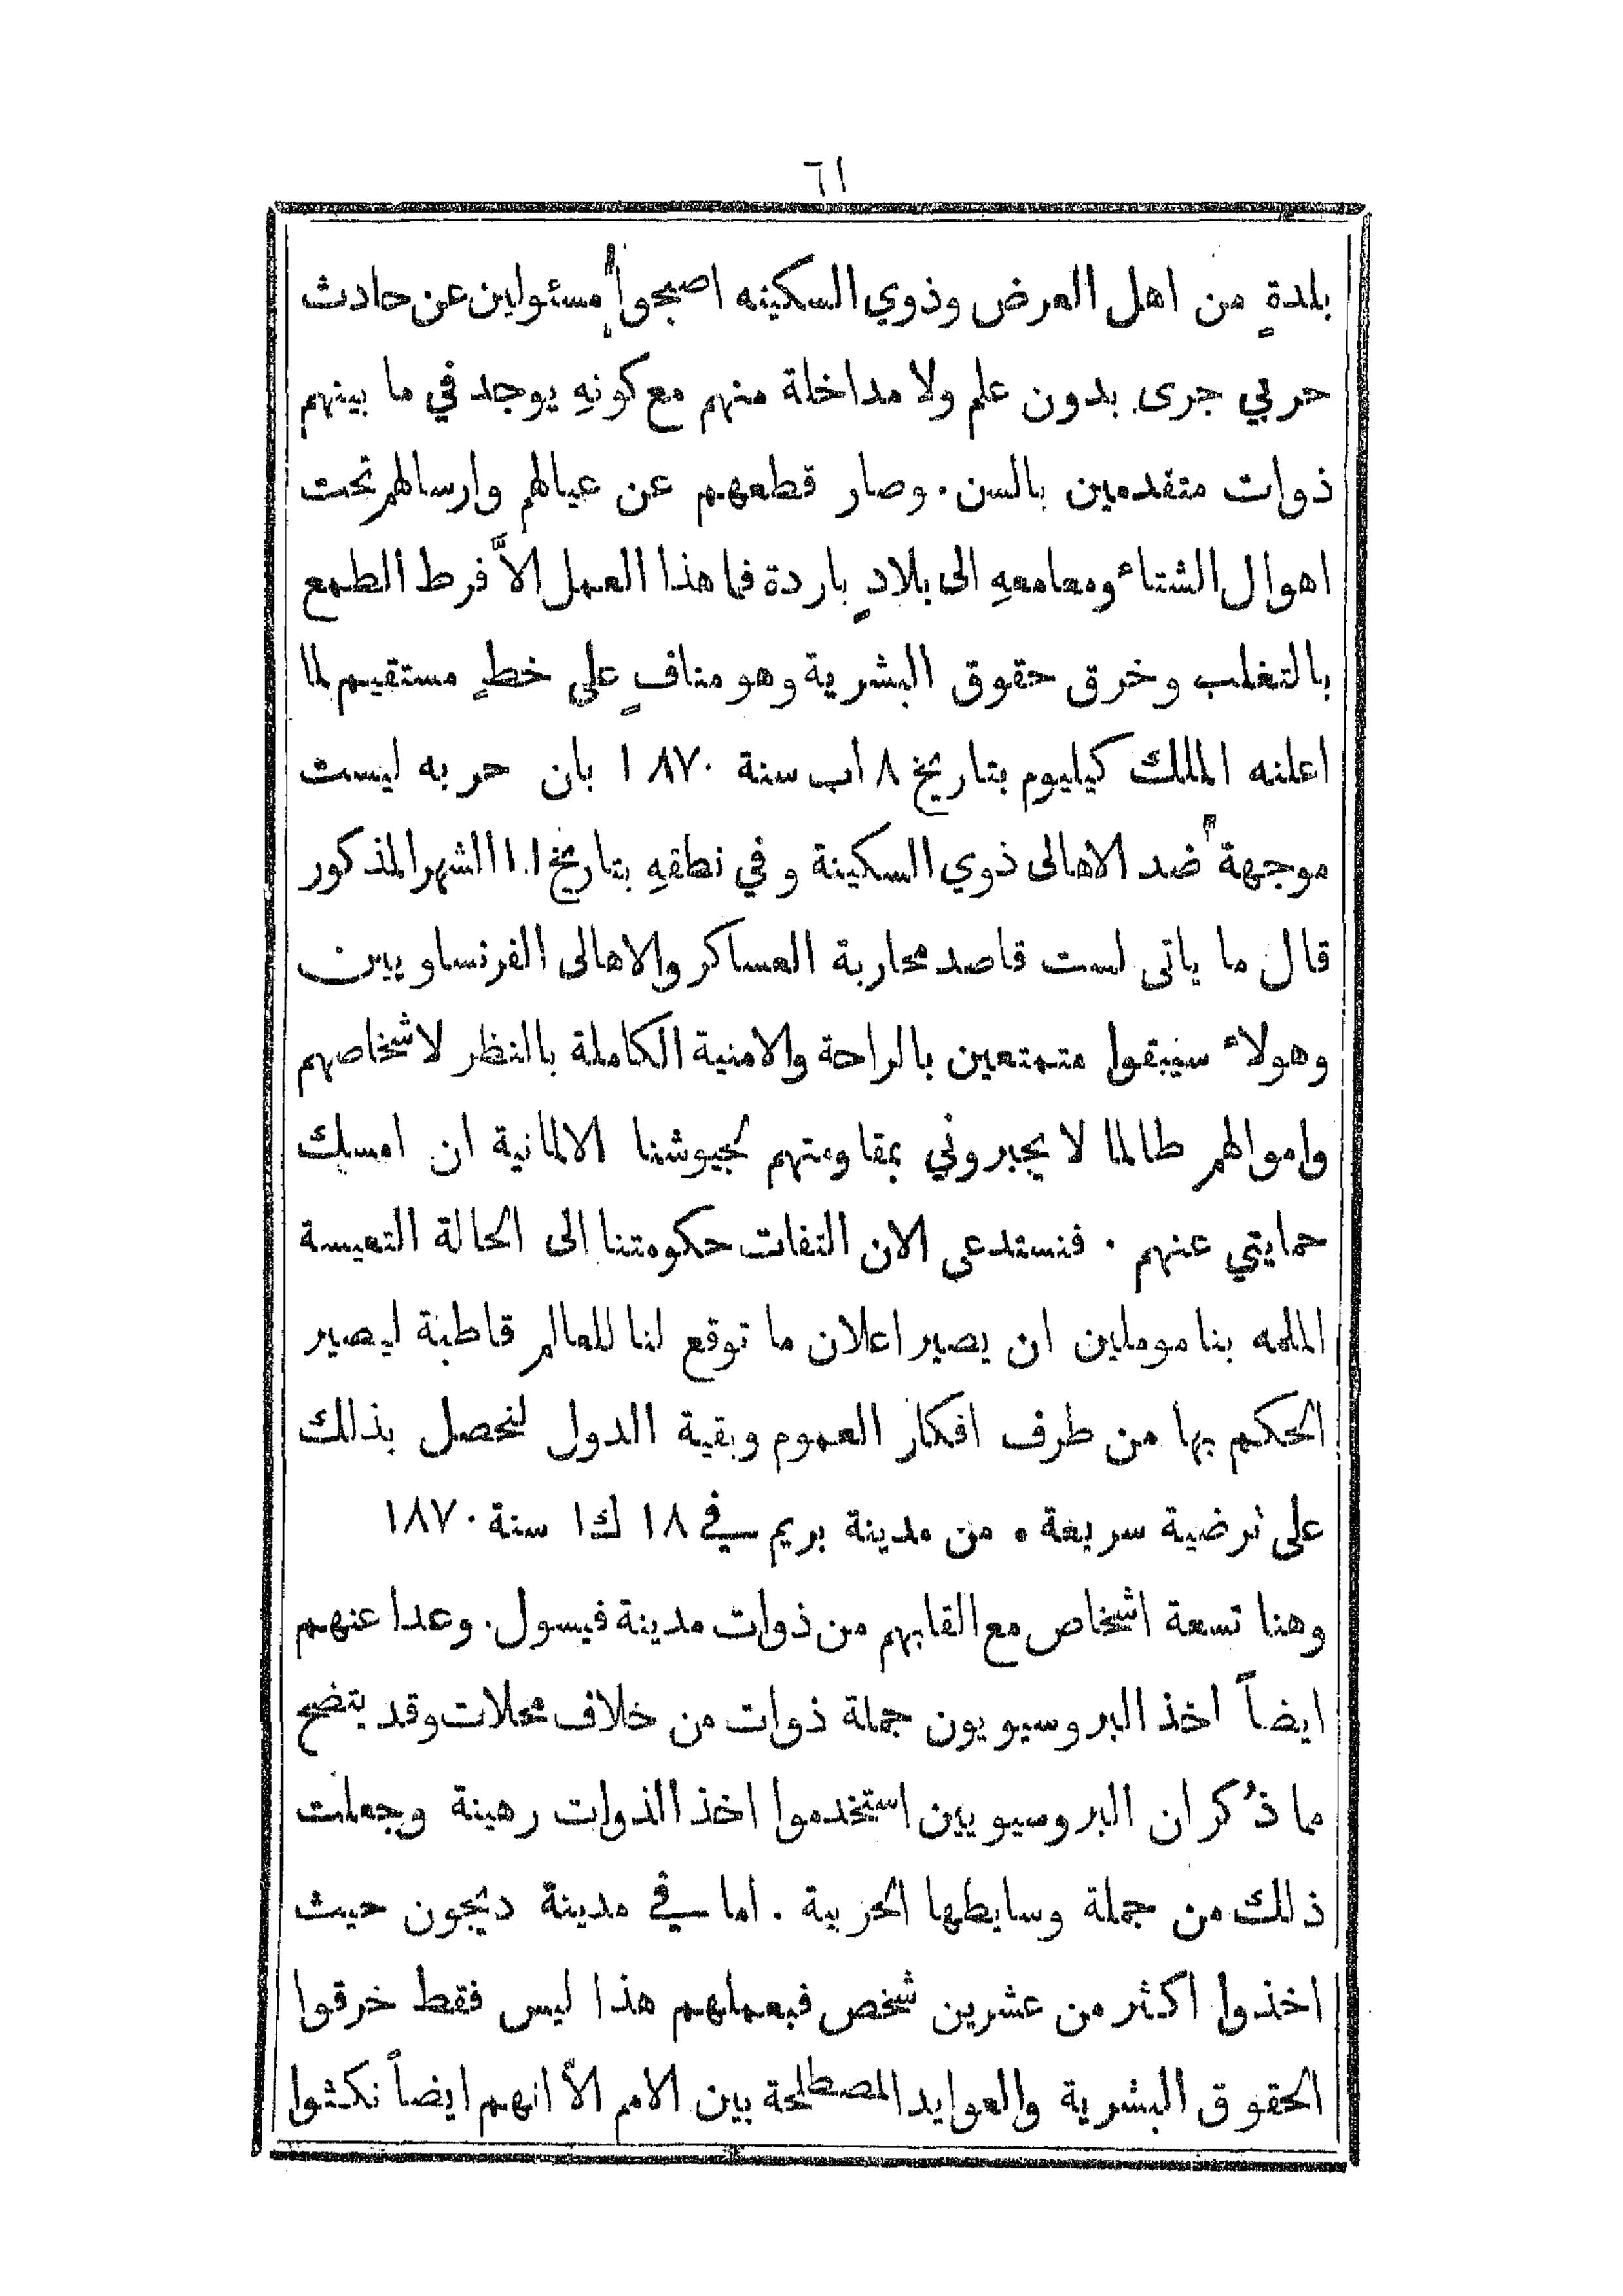 ٦١
بلدةٍ من اهل العرض وذوي السكينه اصبحوا مسئولين عن حادث
حربي جرى بدون علم ولا مداخلة منهم مع كونهِ يوجد في ما بينهم
ذوات متقدمين بالسن . وصار قطعهم عن عيالهم وارسالهم تحت
اهوال الشتاء ومعامعهِ الى بلادٍ باردة فما هذا العمل الاَّ فرط الطمع
بالتغلب وخرق حقوق البشرية وهو منافٍ على خطٍ مستقيم لما
اعلنه الملك كيليوم بتاريخ ٨ اب سنة ١٨٧٠ بان حربه ليست
موجهة ضد الاهالى ذوي السكينة وفي نطقهِ بتاريخ ١١ الشهر المذكور
قال ما ياتى لست قاصد محاربة العساكر والاهالى الفرنساويين
وهولاء سيبقوا متمتعين بالراحة والامنية الكاملة بالنظر لاشخاصهم
واموالهم طالما لا يجبروني بمقاومتهم لجيوشنا الالمانية ان امسك
حمايتي عنهم . فنستدعى الان التفات حكومتنا الى الحالة التعيسة
الملمه بنا موملين ان يصير اعلان ما توقع لنا للعالم قاطبة ليصير
الحكم بها من طرف افكار العموم وبقية الدول لنحصل بذلك
على ترضية سريعة . من مدينة بريم في ١٨ ك١ سنة ١٨٧٠
وهنا تسعة اشخاص مع القابهم من ذوات مدينة فيسول . وعدا عنهم
ايضاً اخذ البروسيويون جملة ذوات من خلاف محلات وقد يتضح
مما ذُكر ان البروسيويين استخدموا اخذ الذوات رهينة وجعلت
ذلك من جملة وسايطها الحربية . اما في مدينة ديجون حيث
اخذوا اكثر من عشرين شخص فبعملهم هذا ليس فقط خرقوا
الحقوق البشرية والعوايد المصطلحة بين الامم الاَّ انهم ايضاً نكثوا